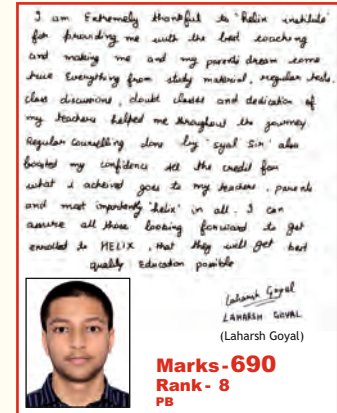 I am Extremely thankful to 'helix institute'
for providing me with the best coaching
and making me and my parents dream come
true Everything from study material, regular tests.
class discussions, doubt classes and dedication of
my teachers helped me throughout the journey
Regular Counselling done by 'Syal Sir' also
boosted my confidence All the credit for
what I achieved goes to my teachers, parents
and most importantly 'helix' in all. I can
assure all those looking forward to get
enrolled to HELIX, that they will get best
quality Education possible
Laharsh Goyal
LAHARSH GOYAL
(Laharsh Goyal)
Marks-690
Rank- 8
PB